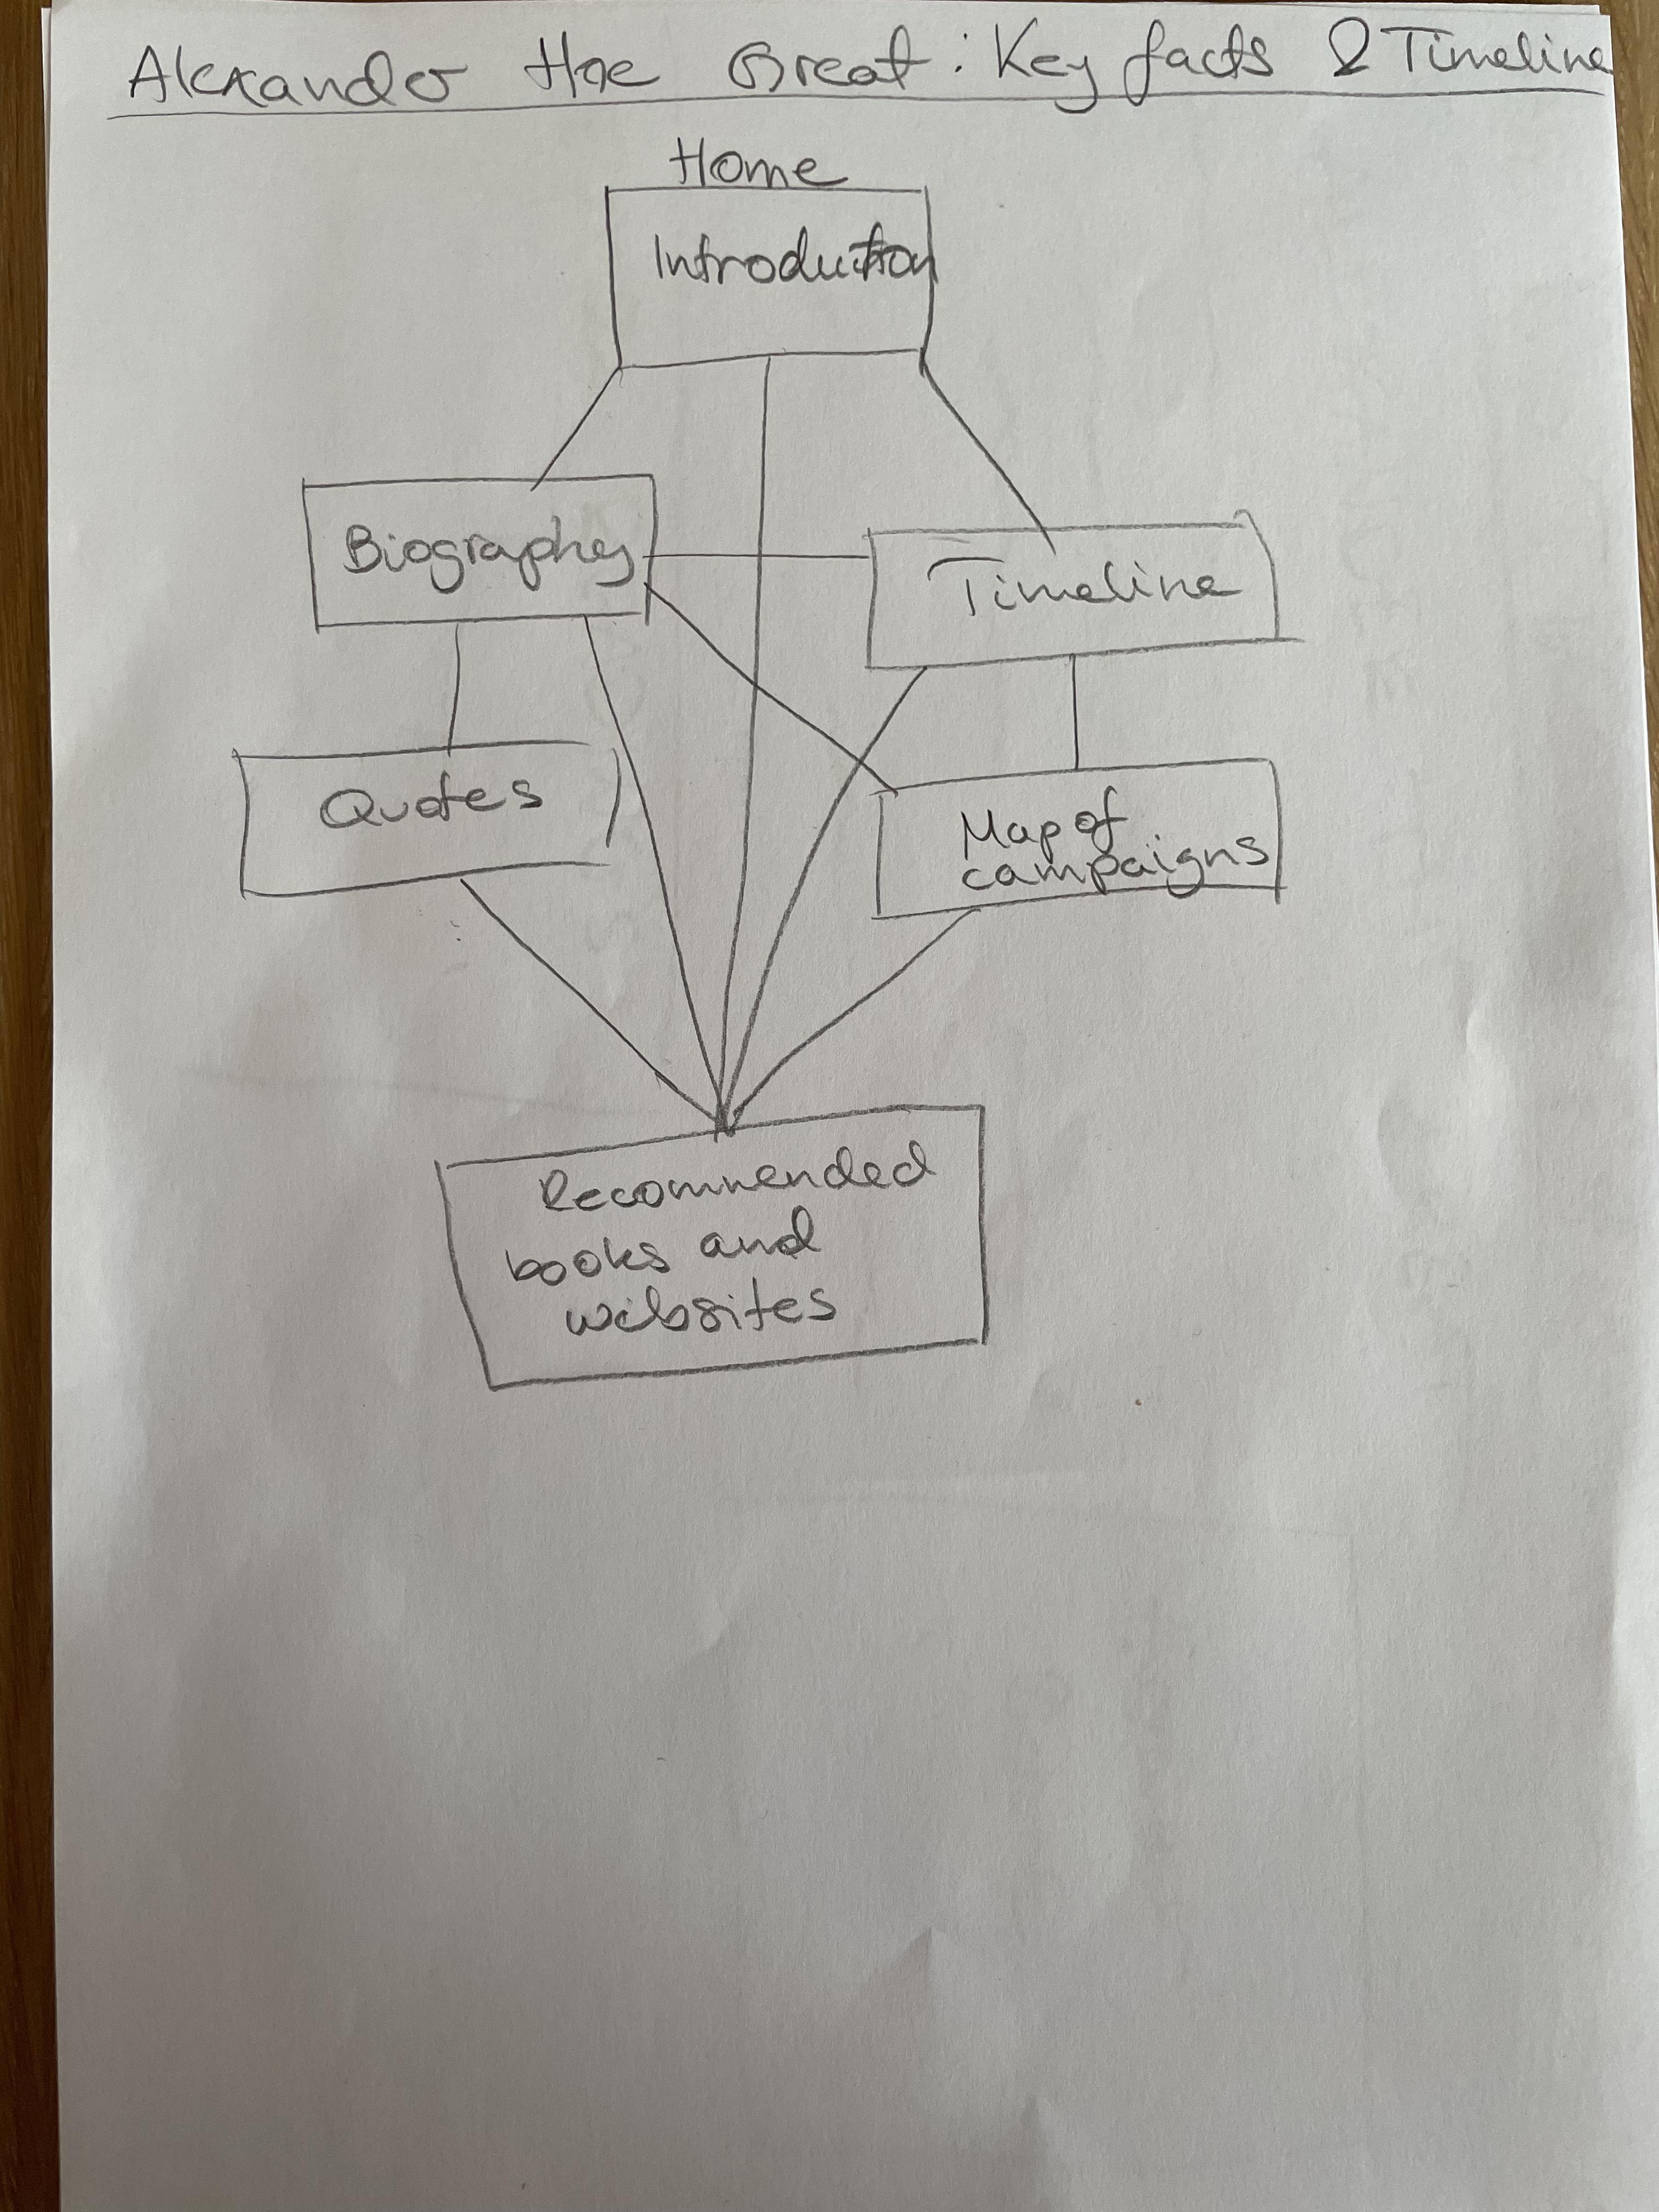 Alexander the Great: Key facts & Timeline
Home
Introduction
Biography
Timeline
Quotes
Map of
campaigns
Recommended
books and
websites